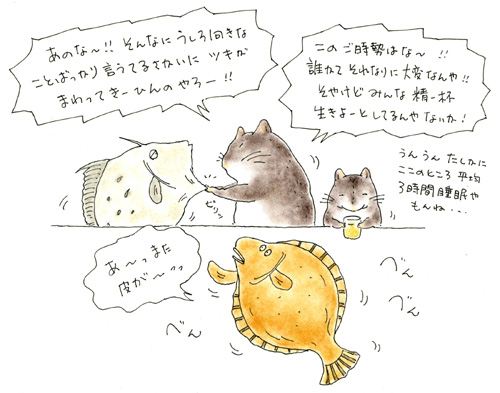 あのな〜!! そんなにうしろ向きな
ことばっかり言うてるさかいに ツキが
まわってきーひんのやろー!!
このご時勢はな〜!!
誰かて それなりに大変なんや!!
そやけど みんな 精一杯
生きよーとしてるんやないか!
うんうん たしかに
ここのところ 平均
3時間睡眠や
もんね・・・
ピリッ
あ〜っまた
皮が〜っっ
べん
べん
べん